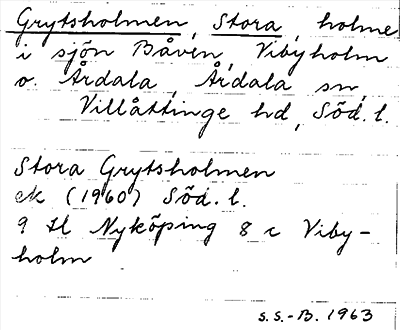 Grytsholmen, Stora, holme
i sjön Båven, Vibyholm
o. Årdala, Årdala sn,
Villåttinge hd, Söd. l.
Stora Grytsholmen
ek (1960) Söd. l.
9 H Nyköping 8 c Viby-
holm
S.S.-B. 1963